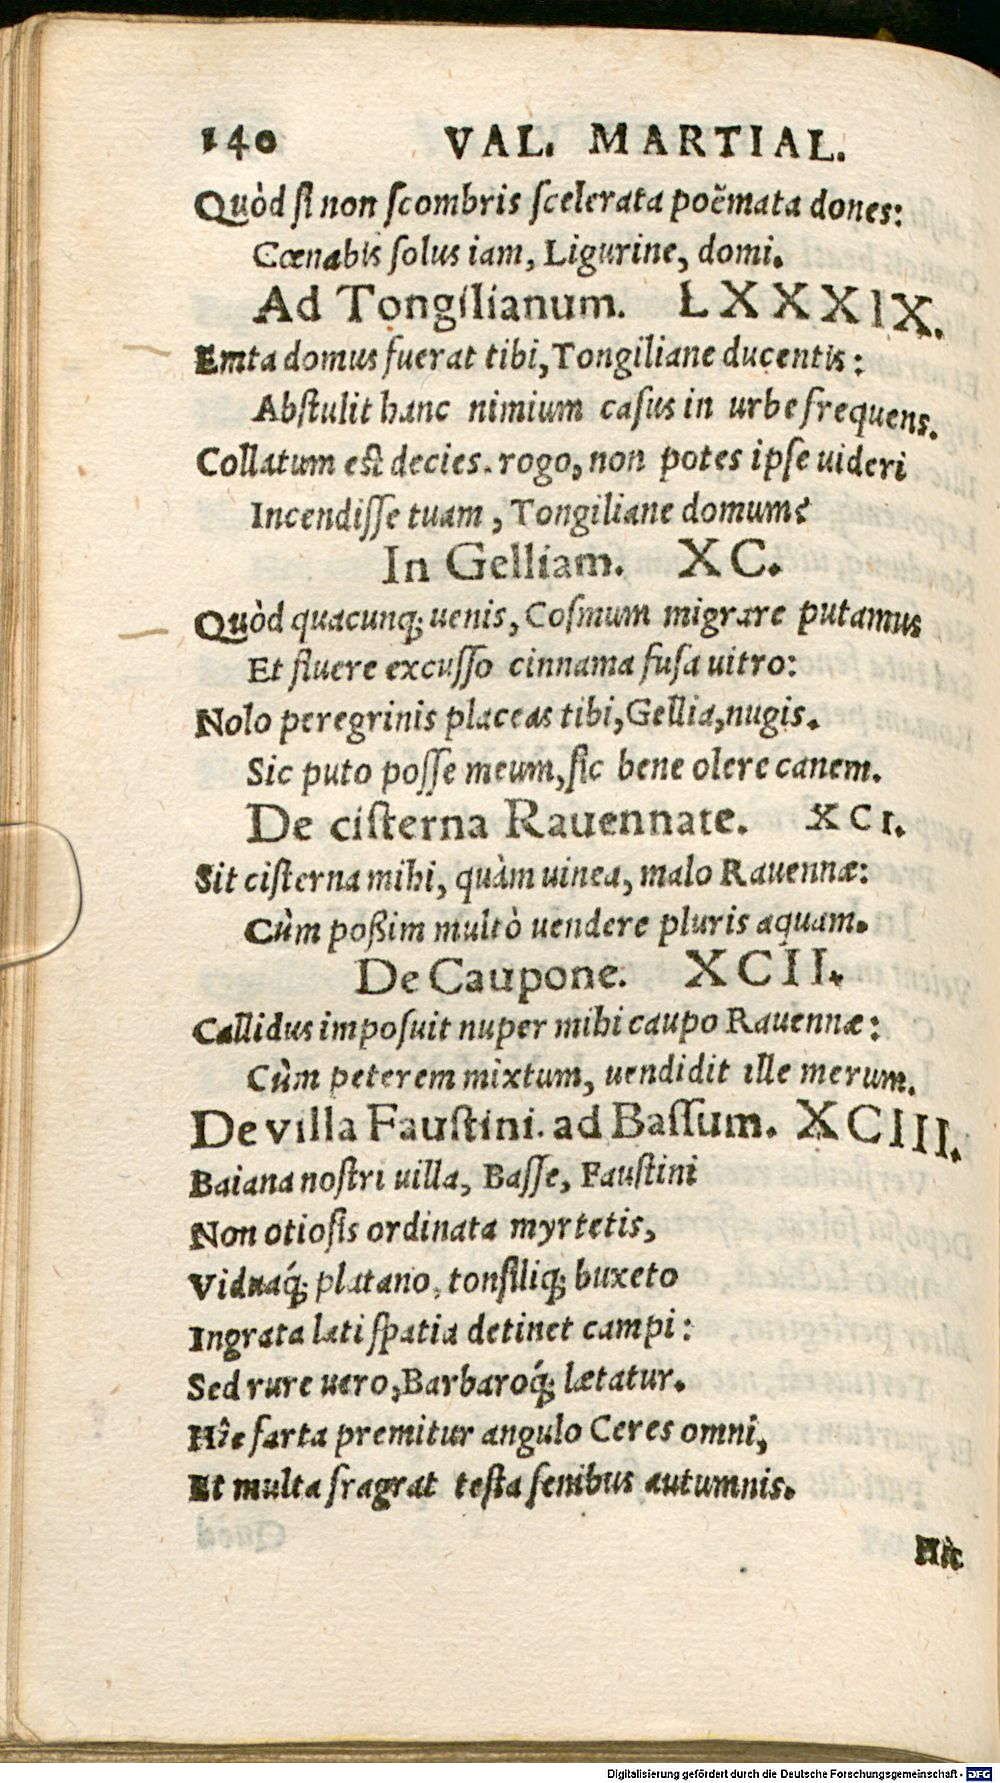 140 VAL. MARTIAL.
Quòd ſi non ſcombris ſcelerata poëmata dones:
Cœnabis ſolus iam, Ligurine, domi.
Ad Tongilianum. LXXXIX.
Emta domus fuerat tibi, Tongiliane ducentis:
Abſtulit hanc nimium caſus in urbe frequens.
Collatum eſt decies. rogo, non potes ipſe uideri
Incendiſſe tuam, Tongiliane domum?
In Gelliam. XC.
Quòd quacunq; uenis, Coſmum migrare putamus
Et fluere excuſſo cinnama fuſa uitro:
Nolo peregrinis placeas tibi, Gellia, nugis.
Sic puto poſſe meum, ſic bene olere canem.
De ciſterna Rauennate. XCI.
Sit ciſterna mihi, quàm uinea, malo Rauennæ:
Cùm poßim multò uendere pluris aquam.
De Caupone. XCII.
Callidus impoſuit nuper mihi caupo Rauennæ:
Cùm peterem mixtum, uendidit ille merum.
De villa Fauſtini. ad Baſſum. XCIII.
Baiana noſtri uilla, Baſſe, Fauſtini
Non otioſis ordinata myrtetis,
Viduaq́; platano, tonſiliq; buxeto
Ingrata lati ſpatia detinet campi:
Sed rure uero, Barbaroq́; lætatur.
Hîc farta premitur angulo Ceres omni,
Et multa fragrat teſta ſenibus autumnis.
Hîc
Digitalisierung gefördert durch die Deutsche Forschungsgemeinschaft - DFG